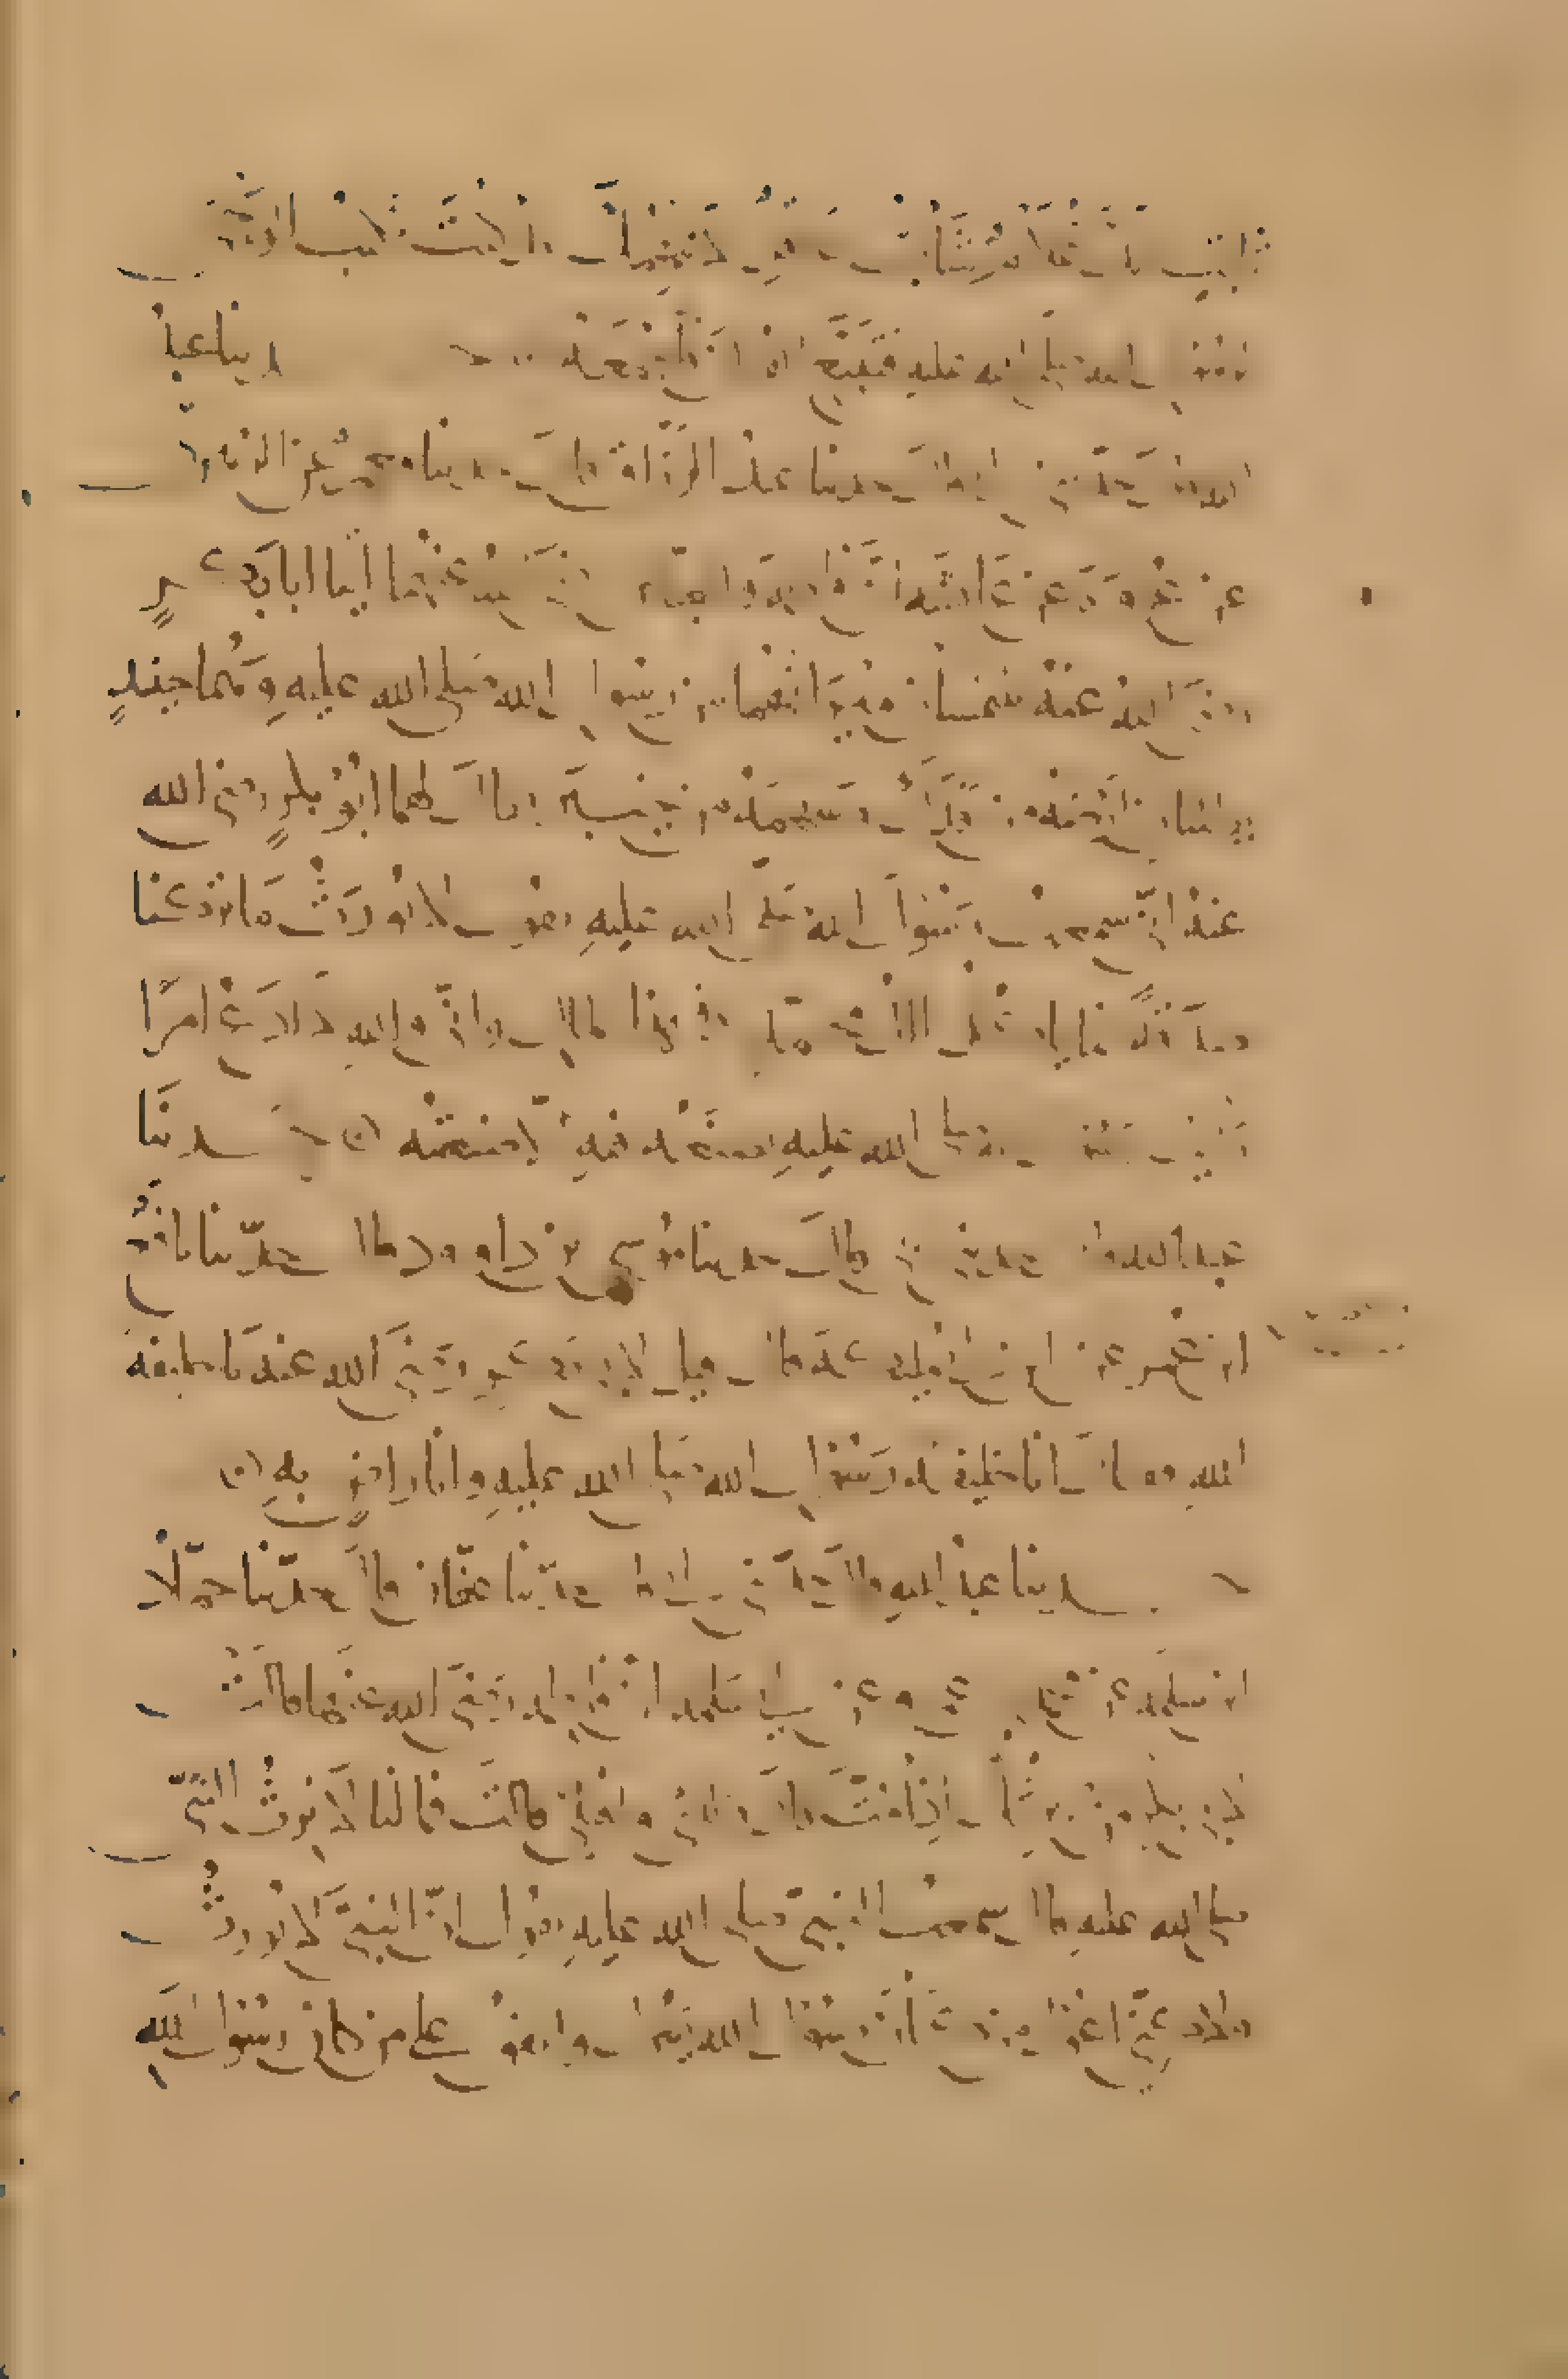 ثابت غلام شاب قد كنت تكتب الوحي
لرسول الله صلى الله عليه فتتبع القران فاجمعه حدثنا عبد
الله قال حدثني ابي قال حدثنا عبد الرزاق قال حدثنا معمر عن الزهري
عن عروة عن عائشة ان فاطمة والعباس اتيا ابا بكر
رضي الله عنه يلتمسان ميراثهما من رسول الله صلى الله عليه وهما حينئذ
يطلبان ارضه من فدك وسهمه من خيبر فقال لهما ابو بكر رضي الله
عنه اني سمعت رسول الله صلى الله عليه يقول لا نورث ما تركنا
صدقة انما ياكل ال محمد في هذا المال واني والله لا ادع امرا
رايت رسول الله صلى الله عليه يصنعه فيه الا صنعته حدثنا
عبد الله قال حدثني ابي قال حدثنا موسى بن داود قال حدثنا نافع
ابن عمر عن ابن ابي مليكة قال قيل لابي بكر رضي الله عنه يا خليفة
الله قال انا خليفة رسول الله صلى الله عليه وانا راض به
حدثنا عبد الله قال حدثني ابي قال حدثنا عفان قال حدثنا حماد
ابن سلمة عن محمد بن عمرو عن ابي سلمة ان فاطمة رضي الله عنها قالت
لابي بكر من يرثك اذا مت قال ولدي واهلي قالت فما لنا لا نرث النبي
صلى الله عليه قال سمعت النبي صلى الله عليه يقول ان النبي لا يورث
ولكني اعول من كان رسول الله يعول وانفق على من كان رسول الله